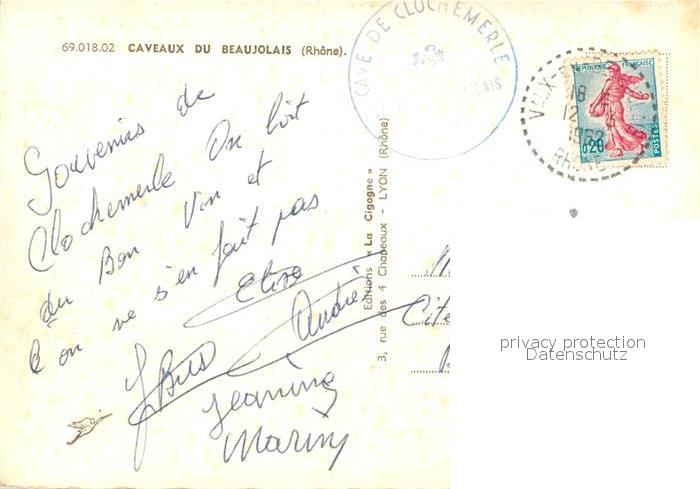 69.018.02 CAVEAUX DU BEAUJOLAIS (Rhône).
CAVE DE CLOCHEMERLE
RHONE
12
1962
REPUBLIQUE FRANÇAISE
0,20
POSTES
Souvenirs de
Clochemerle On boit
du Bon Vin et
on ne s'en fait pas
Elise
André
Jeanine
Editions « La Cigogne »
3, rue des 4 Chapeaux - LYON (Rhône)
Cité
privacy protection
Datenschutz